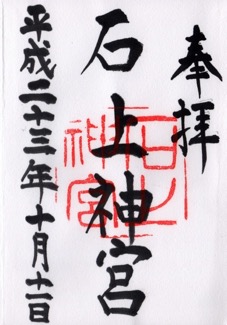 奉拝
石上神宮
平成二十三年十月十一日
石上神宮